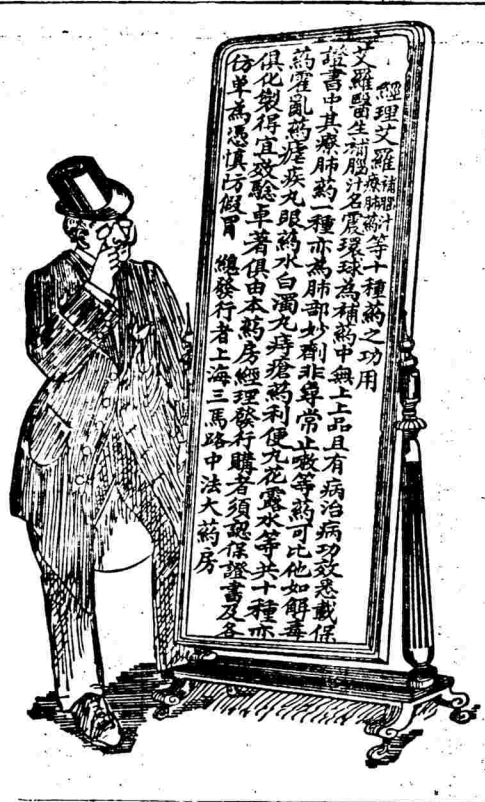 經理艾羅補腦汁療肺藥等十種藥之功用
艾羅醫生補腦汁名震環球為補藥中無上上品且有病治病功效悉載保
證書中其療肺藥一種亦為肺部妙劑非尋常止嗽等藥可比他如解毒
藥霍亂藥瘧疾丸眼藥水白濁丸痔瘡藥利便丸花露水等共十種亦
俱化製得宜效驗卓著俱由本藥房經理發行購者須認保證書及各
仿单為憑慎防假冒 總發行者上海三馬路中法大藥房